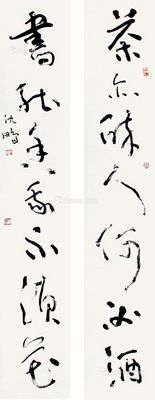 茶亦醉人何必酒
書能香我不須花
沈鵬